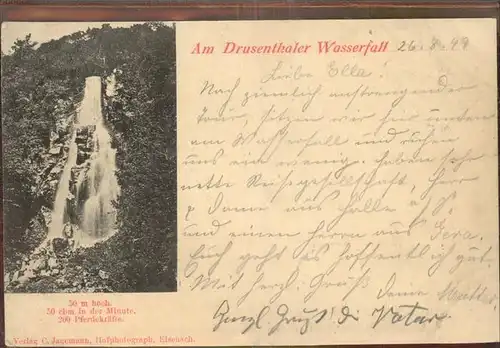 Am Drusenthaler Wasserfall 26.8.99
Liebe Ella!
Nach ziemlich anstrengender
Tour, sitzen wir hier unten
am Wasserfall und ruhen
uns ein wenig, haben sehr
nette Reisegesellschaft, Herr
& Dame aus Halle a/S.
und einen Herrn aus Gera.
Euch geht es hoffentlich gut.
Mit herzl. Gruß Deine Mutter
Gruß Vater
50 m hoch.
50 cbm in der Minute.
200 Pferdekräfte.
Verlag C. Jagemann, Hofphotograph, Eisenach.